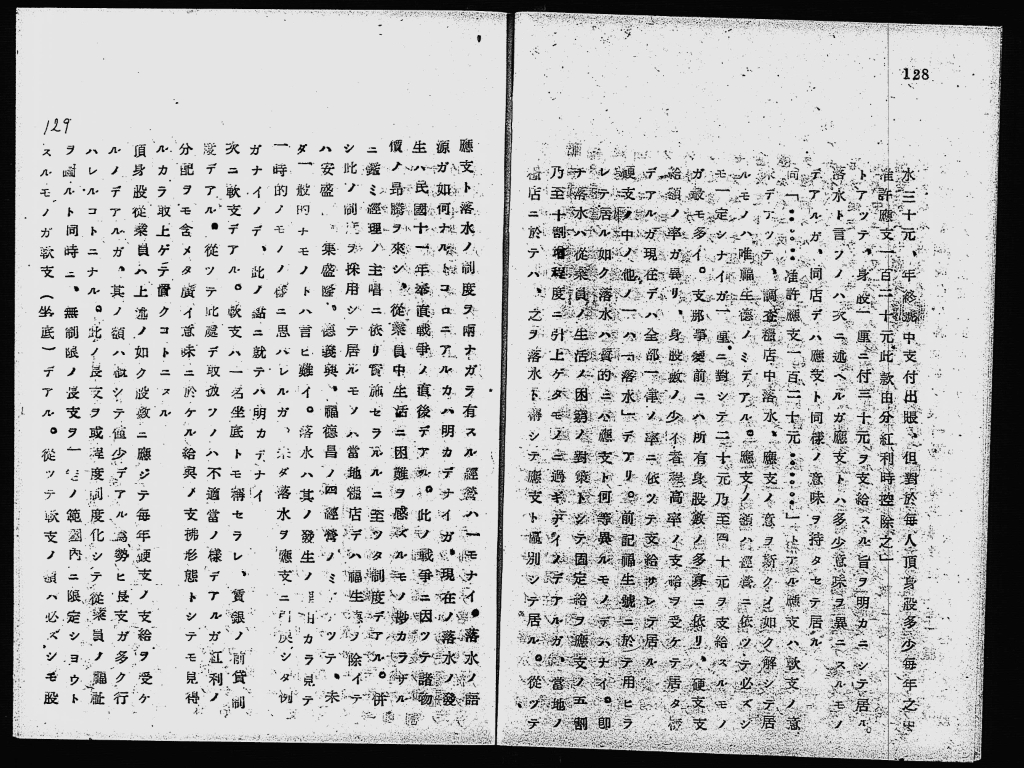 128
水三十元、年終結中支付出賬、但對於毎人頂身股多少毎年之中
准許應支一百二十元此款由分紅利時控除之」
トアツテ、身股一厘ニ付三十元ヲ支給スル旨ヲ明カニシテ居ル。
落水ト言フノハ次ニ述ベルガ應支トハ多少意味ヲ異ニスルモノ
デアルガ、同店デハ應支ト同様ノ意味ヲ持タセテ居ル
同「……准許應支一百二十元……」トアル應支ハ軟支ノ意
デアツテ、調査糧店中落水、應支ノ意ヲ斯クノ如ク解シテ居
ルモノハ唯福生德ノミデアル。應支ノ額ハ經營ニ依ツテ必ズシ
モ一定シナイガ一厘ニ對シテ二十元乃至四十元ヲ支給スル
ガ最モ多イ。支那事變前ニハ所有身股數ノ多寡ニ依リ、硬支支
給額ノ率ガ異リ、身股數ノ少イ者ガ高率ノ支給ヲ受ケテ居タ
デアルガ現在デハ全部一律ノ率ニ依ツテ支給サレテ居ル
硬支ノ中ノ他ノ一ハ「落水」デアリ。前記福生號ニ於テ用ヒラ
レテ居ル如ク落水ハ質的ニハ應支ト何等異ルモノデハナイ。即
チ落水ハ從業員ノ生活ノ困窮ノ對策トシテ固定給ヲ應支ノ五割
乃至十割増程度ニ引上ゲタモノニ過ギナイノデアルガ、當地ノ
糧店ニ於テハ、之ヲ落水ト稱シテ應支ト區別シテ居ル。從ツテ
應支ト落水ノ制度ヲ兩ナガラ有スル經營ハ一モナイ。落水ノ語
源ガ如何ナルトコロニアルカハ明カデナイガ、現在ノ落水ノ發
生ハ民國十一年奉直戰爭ノ直後デアル。此ノ戰爭ニ因ツテ諸物
價ノ昂騰ヲ來シ、從業員中生活ニ困難ヲ感ズルモノ尠カラザル
ニ鑑ミ經理ノ主唱ニ依リ實施セラルルニ至ツタ制度デアル。併
シ此ノ制度ヲ採用シテ居ルモノハ當地糧店デハ福生泰ヲ除イテ
ハ安盛 、集盛隆、德義興、福德昌ノ四經營ノミデアツテ、未
ダ一般的ナモノトハ言ヒ難イ。落水ハ其ノ發生ノ理由カラ見テ
一時的ノモノノ樣ニ思ハレルガ、未ダ落水ヲ應支ニ引戻シタ例
ガナイノデ、此ノ點ニ就テハ明カデナイ
次ニ軟支デアル。軟支ハ一名坐底トモ稱セラレ、賃銀ノ前貸制
度デアル。從ツテ此處デ取扱フノハ不適當ノ樣デアルガ紅利ノ
分配ヲモ含メタ廣イ意味ニ於ケル給與ノ支拂形態トシテモ見得
ルカラ取上ゲテ置クコトニスル
頂身股從業員ハ上述ノ如ク股數ニ應ジテ毎年硬支ノ支給ヲ受ケ
ルノデアルガ、其ノ額ハ概シテ僅少デアル爲勢ヒ長支ガ多ク行
ハレルコトニナル。此ノ長支ヲ或程度制度化シテ從業員ノ福祉
ヲ圖ルト同時ニ、無制限ノ長支ヲ一定ノ範圍內ニ限定シヨウト
スルモノガ軟支(坐底)デアル。從ツテ軟支ノ額ハ必ズシモ股
129